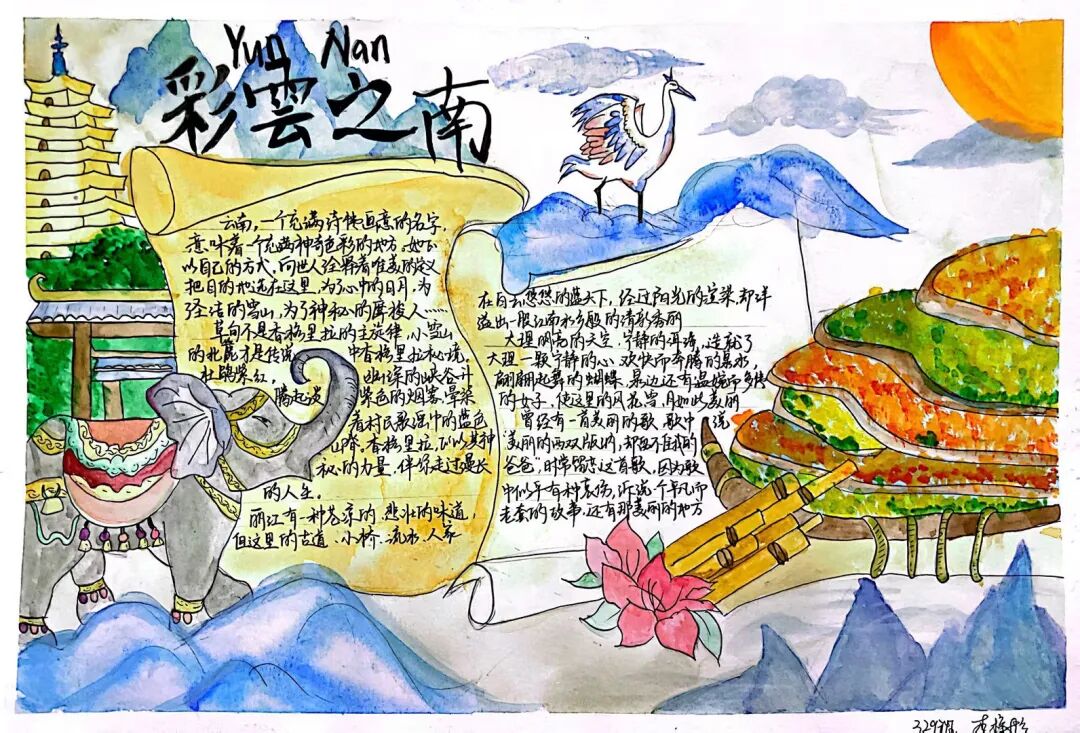 Yun Nan
彩雲之南
云南,一个充满诗情画意的名字,
意味着一个充满神奇色彩的地方。她
以自己的方式,向世人诠释着唯美的定义
把目的地选在这里,为心中的日月,为
圣洁的雪山,为了神秘的摩梭人……
草甸不是香格里拉的主旋律,小雪山
的北麓才是传说 中香格里拉秘境。
杜鹃紫红, 幽深的峡谷升
腾起淡 紫色的烟雾,晕染
着村民歌谣中的蓝色
山峰。香格里拉,正以其神
秘的力量,伴你走过漫长
的人生。
丽江有一种苍凉的 悲壮的味道,
但这里的古道、小桥、流水、人家
在白云悠悠的蓝天下,经过阳光的渲染,却洋
溢出一股江南水乡般的清新秀丽
大理明亮的天空,宁静的洱海,造就了
大理一颗宁静的心,欢快而奔腾的泉水,
翩翩起舞的蝴蝶,泉边还有温婉而多情
的女子,使这里的风花雪月如此美丽
曾经有一首美丽的歌,歌中 说
"美丽的西双版纳,却留不住我的
爸爸",时常留恋这首歌,因为歌
中似乎有种哀伤,诉说一个平凡而
老套的故事,还有那美丽的地方
329班